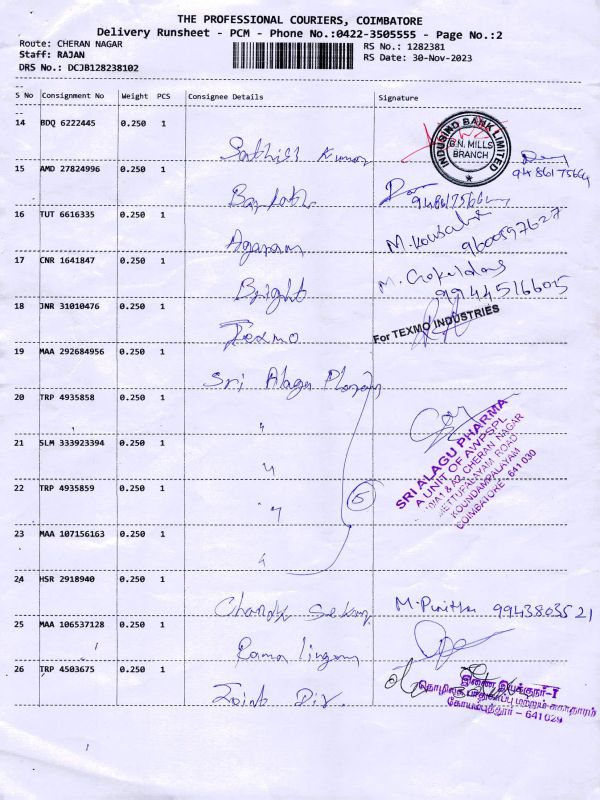 THE PROFESSIONAL COURIERS, COIMBATORE
Delivery Runsheet - PCM - Phone No.:0422-3505555 - Page No.:2
Route: CHERAN NAGAR
RS No.: 1282381
Staff: RAJAN
RS Date: 30-Nov-2023
DRS No.: DCJB128238102
S No Consignment No Weight PCS Consignee Details Signature
14 BDQ 6222445 0.250 1
INDUSIND BANK LIMITED
G.N. MILLS
BRANCH
Kumar
15 AMD 27824996 0.250 1
16 TUT 6616335 0.250 1
Agaram M. Kousalya
17 CNR 1641847 0.250 1
Bright M. Gokuldas
18 JNR 31010476 0.250 1
Texmo For TEXMO INDUSTRIES
19 MAA 292684956 0.250 1
Sri Alagu
20 TRP 4935858 0.250 1
"
21 SLM 333923394 0.250 1
"
SRI ALAGU PHARMA
A UNIT OF AWPSPL
& A2, CHERAN NAGAR
METTUPALAYAM ROAD
KOUNDAMPALAYAM
COIMBATORE - 641 030
22 TRP 4935859 0.250 1
"
5
23 MAA 107156163 0.250 1
"
24 HSR 2918940 0.250 1
Chandra Sekar M. Punitha 9943803521
25 MAA 106537128 0.250 1
Rama lingam
26 TRP 4503675 0.250 1
Joint Dir.
இணை இயக்குநர்-I
தொழிலக பாதுகாப்பு மற்றும் சுகாதாரம்
கோயம்புத்தூர் - 641029